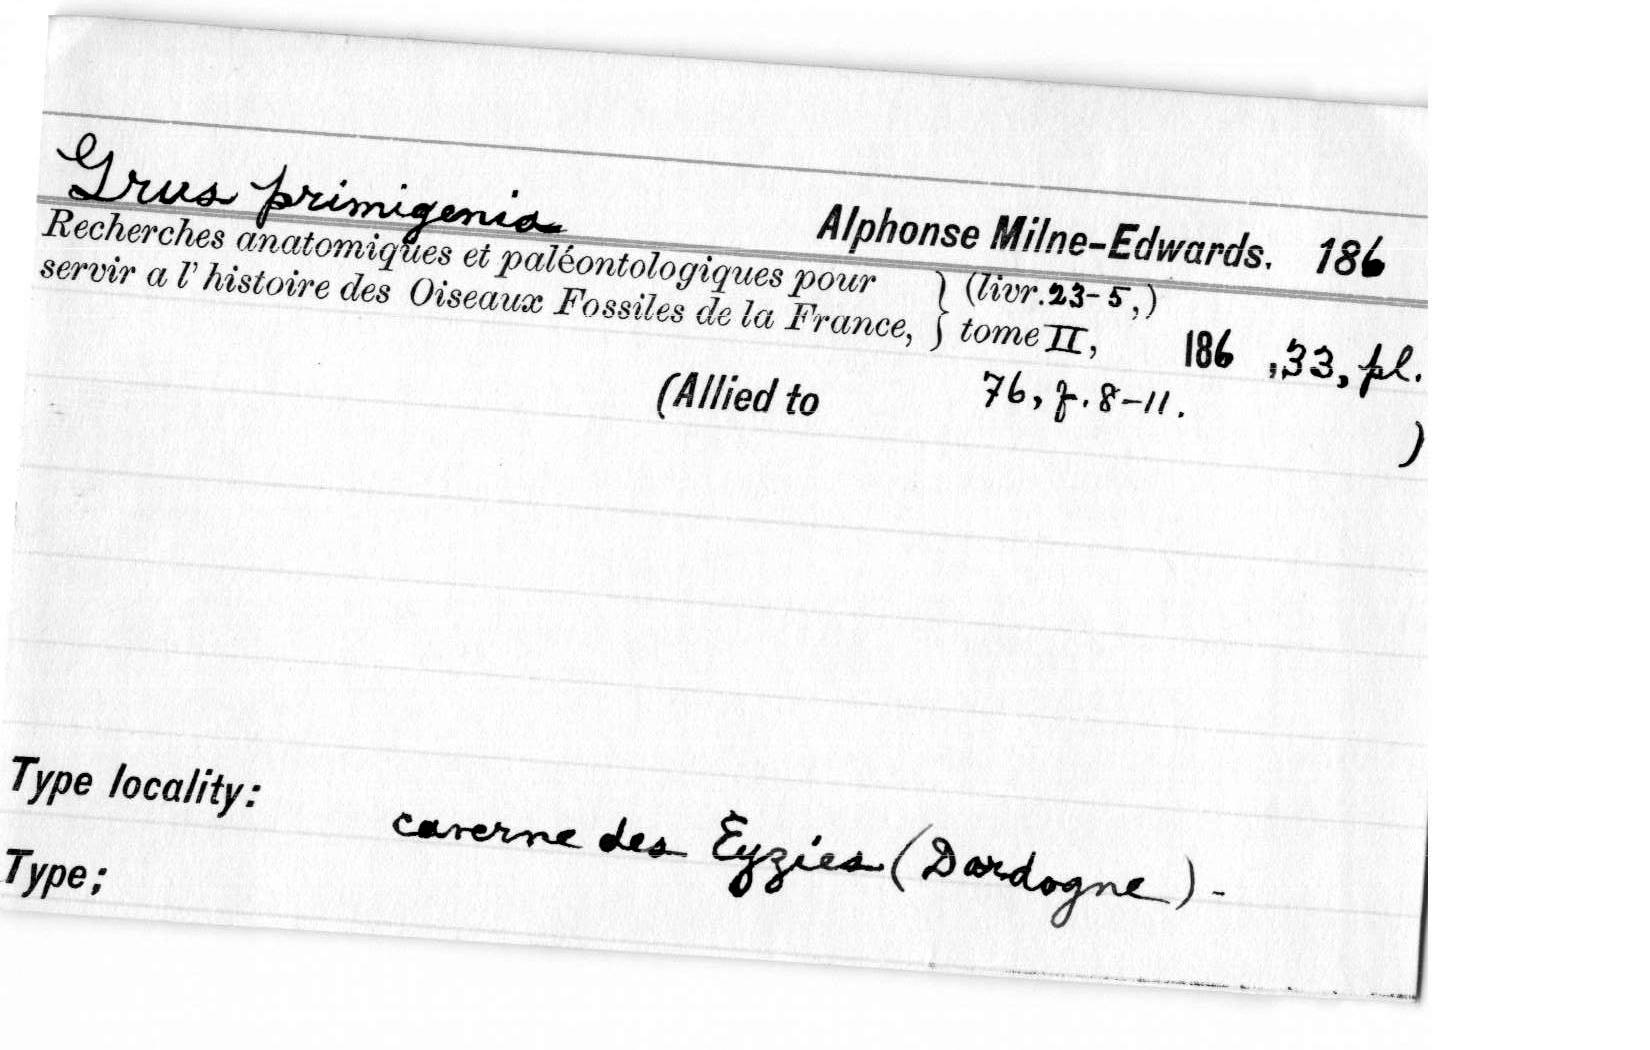 Grus primigenia Alphonse Milne-Edwards. 186
Recherches anatomiques et paléontologiques pour } (livr. 23-5,)
servir a l'histoire des Oiseaux Fossiles de la France, } tome II, 186 , 33, pl.
(Allied to 76, f. 8-11. )
Type locality:
caverne des Eyzies (Dordogne) -
Type;